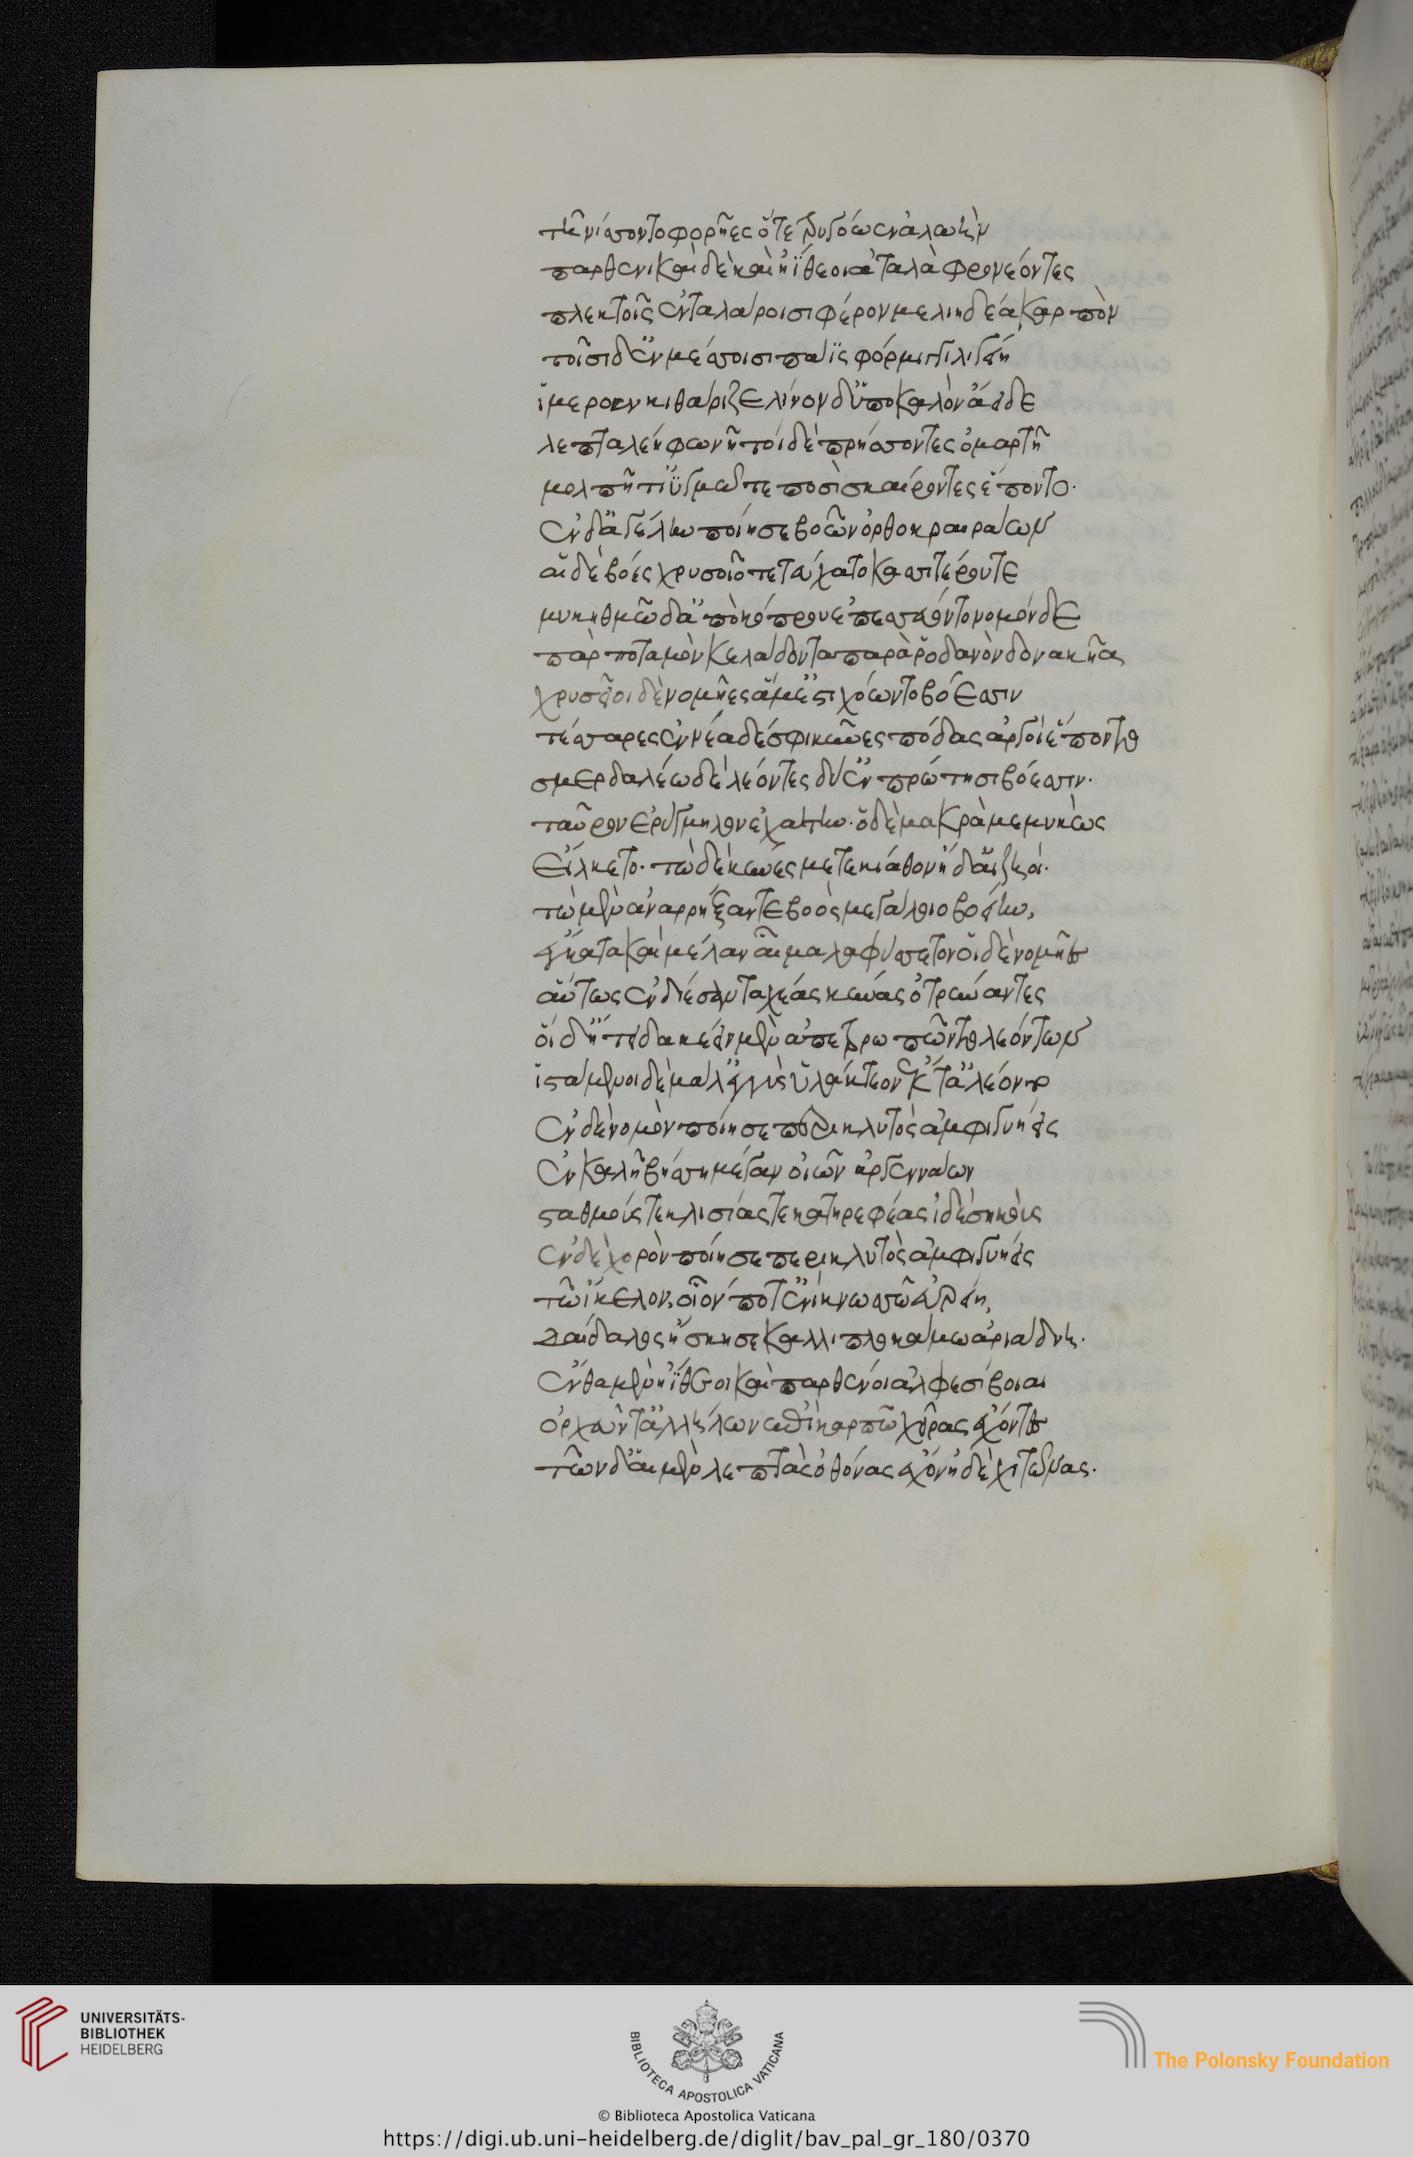 τῆ νίσσοντο φορῆες ὅτε τρυγόωεν ἀλωὴν
παρθενικαὶ δὲ καὶ ἠΐθεοι ἀταλὰ φρονέοντες
πλεκτοῖς ἐν ταλάροισι φέρον μελιηδέα καρπὸν
τοῖσι δ' ἐν μέσσοισι παϊς φόρμιγγι λιγείη
ἱμερόεν κιθάριζε λίνον δ' ὑπὸ καλὸν ἄειδε
λεπταλέη φωνῆ τοὶ δὲ πρήσσοντες ὁμαρτῆ
μολπῆ τ' ἰϋγμῶ τε ποσὶ σκαίροντες ἕποντο.
ἐν δ' ἀγέλην ποίησε βοῶν ὀρθοκραιράων
αἱ δὲ βόες χρυσοῖο τετεύχατο κασσιτέρου τε
μυκηθμῶ δ' ἀπὸ κόπρου ἐπεσσεύοντο νομόνδε
πὰρ ποταμὸν κελάδοντα παρὰ ῥοδανὸν δονακῆα
χρύσειοι δὲ νομῆες ἅμ' ἐστιχόωντο βόεσσιν
τέσσαρες ἐννέα δέ σφι κύνες πόδας ἀργοὶ ἕποντο
σμερδαλέω δὲ λέοντες δύ' ἐν πρώτησι βόεσσιν.
ταῦρον ἐρύγμηλον ἐχέτην. ὁ δὲ μακρὰ μεμυκὼς
εἵλκετο. τὸν δὲ κύνες μετεκίαθον ἠδ' αἰζηοί.
τὼ μὲν ἀναρρήξαντε βοὸς μεγάλοιο βοείην,
ἔγκατα καὶ μέλαν αἷμα λαφύσσετον οἱ δὲ νομῆες
αὕτως ἐνδίεσαν ταχέας κύνας ὀτρύναντες
οἱ δ' ἤτοι δακέειν μὲν ἀπετρωπῶντο λεόντων
ἱστάμενοι δὲ μάλ' ἐγγὺς ὑλάκτεον ἔκ τ' ἀλέοντο
ἐν δὲ νομὸν ποίησε περικλυτὸς ἀμφιγυήεις
ἐν καλῆ βήσση μέγαν οἰῶν ἀργεννάων
σταθμούς τε κλισίας τε κατηρεφέας ἰδὲ σηκούς
ἐν δὲ χορὸν ποίησε περικλυτὸς ἀμφιγυήεις
τῶ ἴκελον, οἷόν ποτ' ἐνὶ κνωσσῶ εὐρείη,
δαίδαλος ἤσκησε καλλιπλοκάμω ἀριάδνη.
ἔνθα μὲν ἠΐθεοι καὶ παρθένοι ἀλφεσίβοιαι
ὀρχεῦντ' ἀλλήλων ἐπὶ καρπῶ χεῖρας ἔχοντες
τῶν δ' αἱ μὲν λεπτὰς ὀθόνας ἔχον οἱ δὲ χιτῶνας.
UNIVERSITÄTS-
BIBLIOTHEK
HEIDELBERG
BIBLIOTECA APOSTOLICA VATICANA
The Polonsky Foundation
© Biblioteca Apostolica Vaticana
https://digi.ub.uni-heidelberg.de/diglit/bav_pal_gr_180/0370